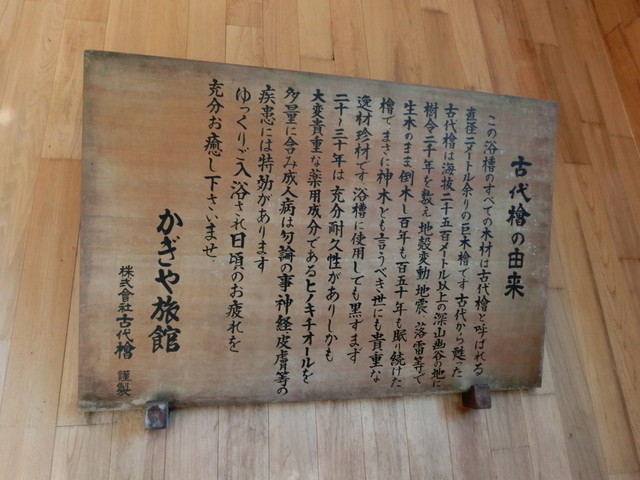 古代檜の由来
この浴槽のすべての木材は古代檜と呼ばれる
直径二メートル余りの巨木檜です古代から甦った
古代檜は海抜二千五百メートル以上の深山幽谷の地に
樹令二千年を数え地殻変動地震落雷等で
生木のまま倒木し百年も百五十年も眠り続けた
檜でまさに神木とも言うべき世にも貴重な
逸材珍材です浴槽に使用しても黒ずまず
二十〜三十年は充分耐久性がありしかも
大変貴重な薬用成分であるヒノキチオールを
多量に含み成人病は勿論の事神経皮膚等の
疾患には特効があります
ゆっくりご入浴され日頃のお疲れを
充分お癒し下さいませ
かぎや旅館
株式會社古代檜 謹製